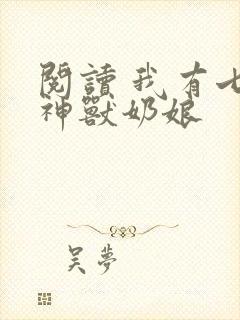 閱讀我有七
神獸奶娘
吴夢